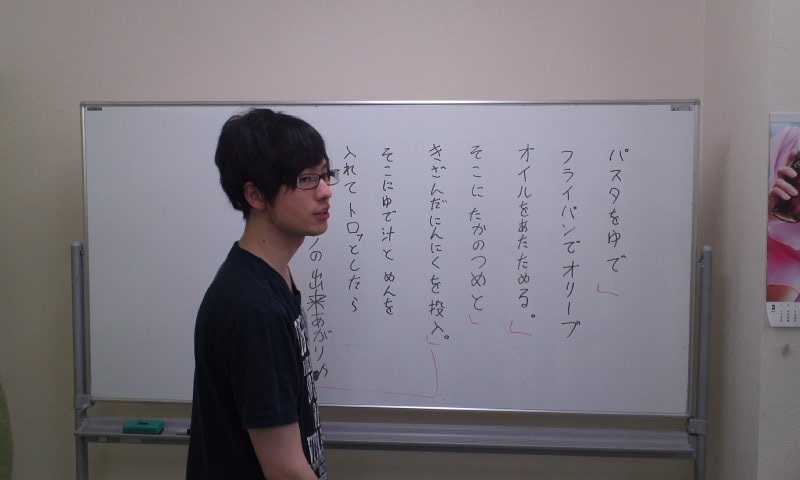 パスタをゆで
フライパンでオリーブ
オイルをあたためる。
そこに たかのつめと
きざんだにんにくを投入。
そこにゆで汁と めんを
入れて トロッとしたら
の出来あがり♪